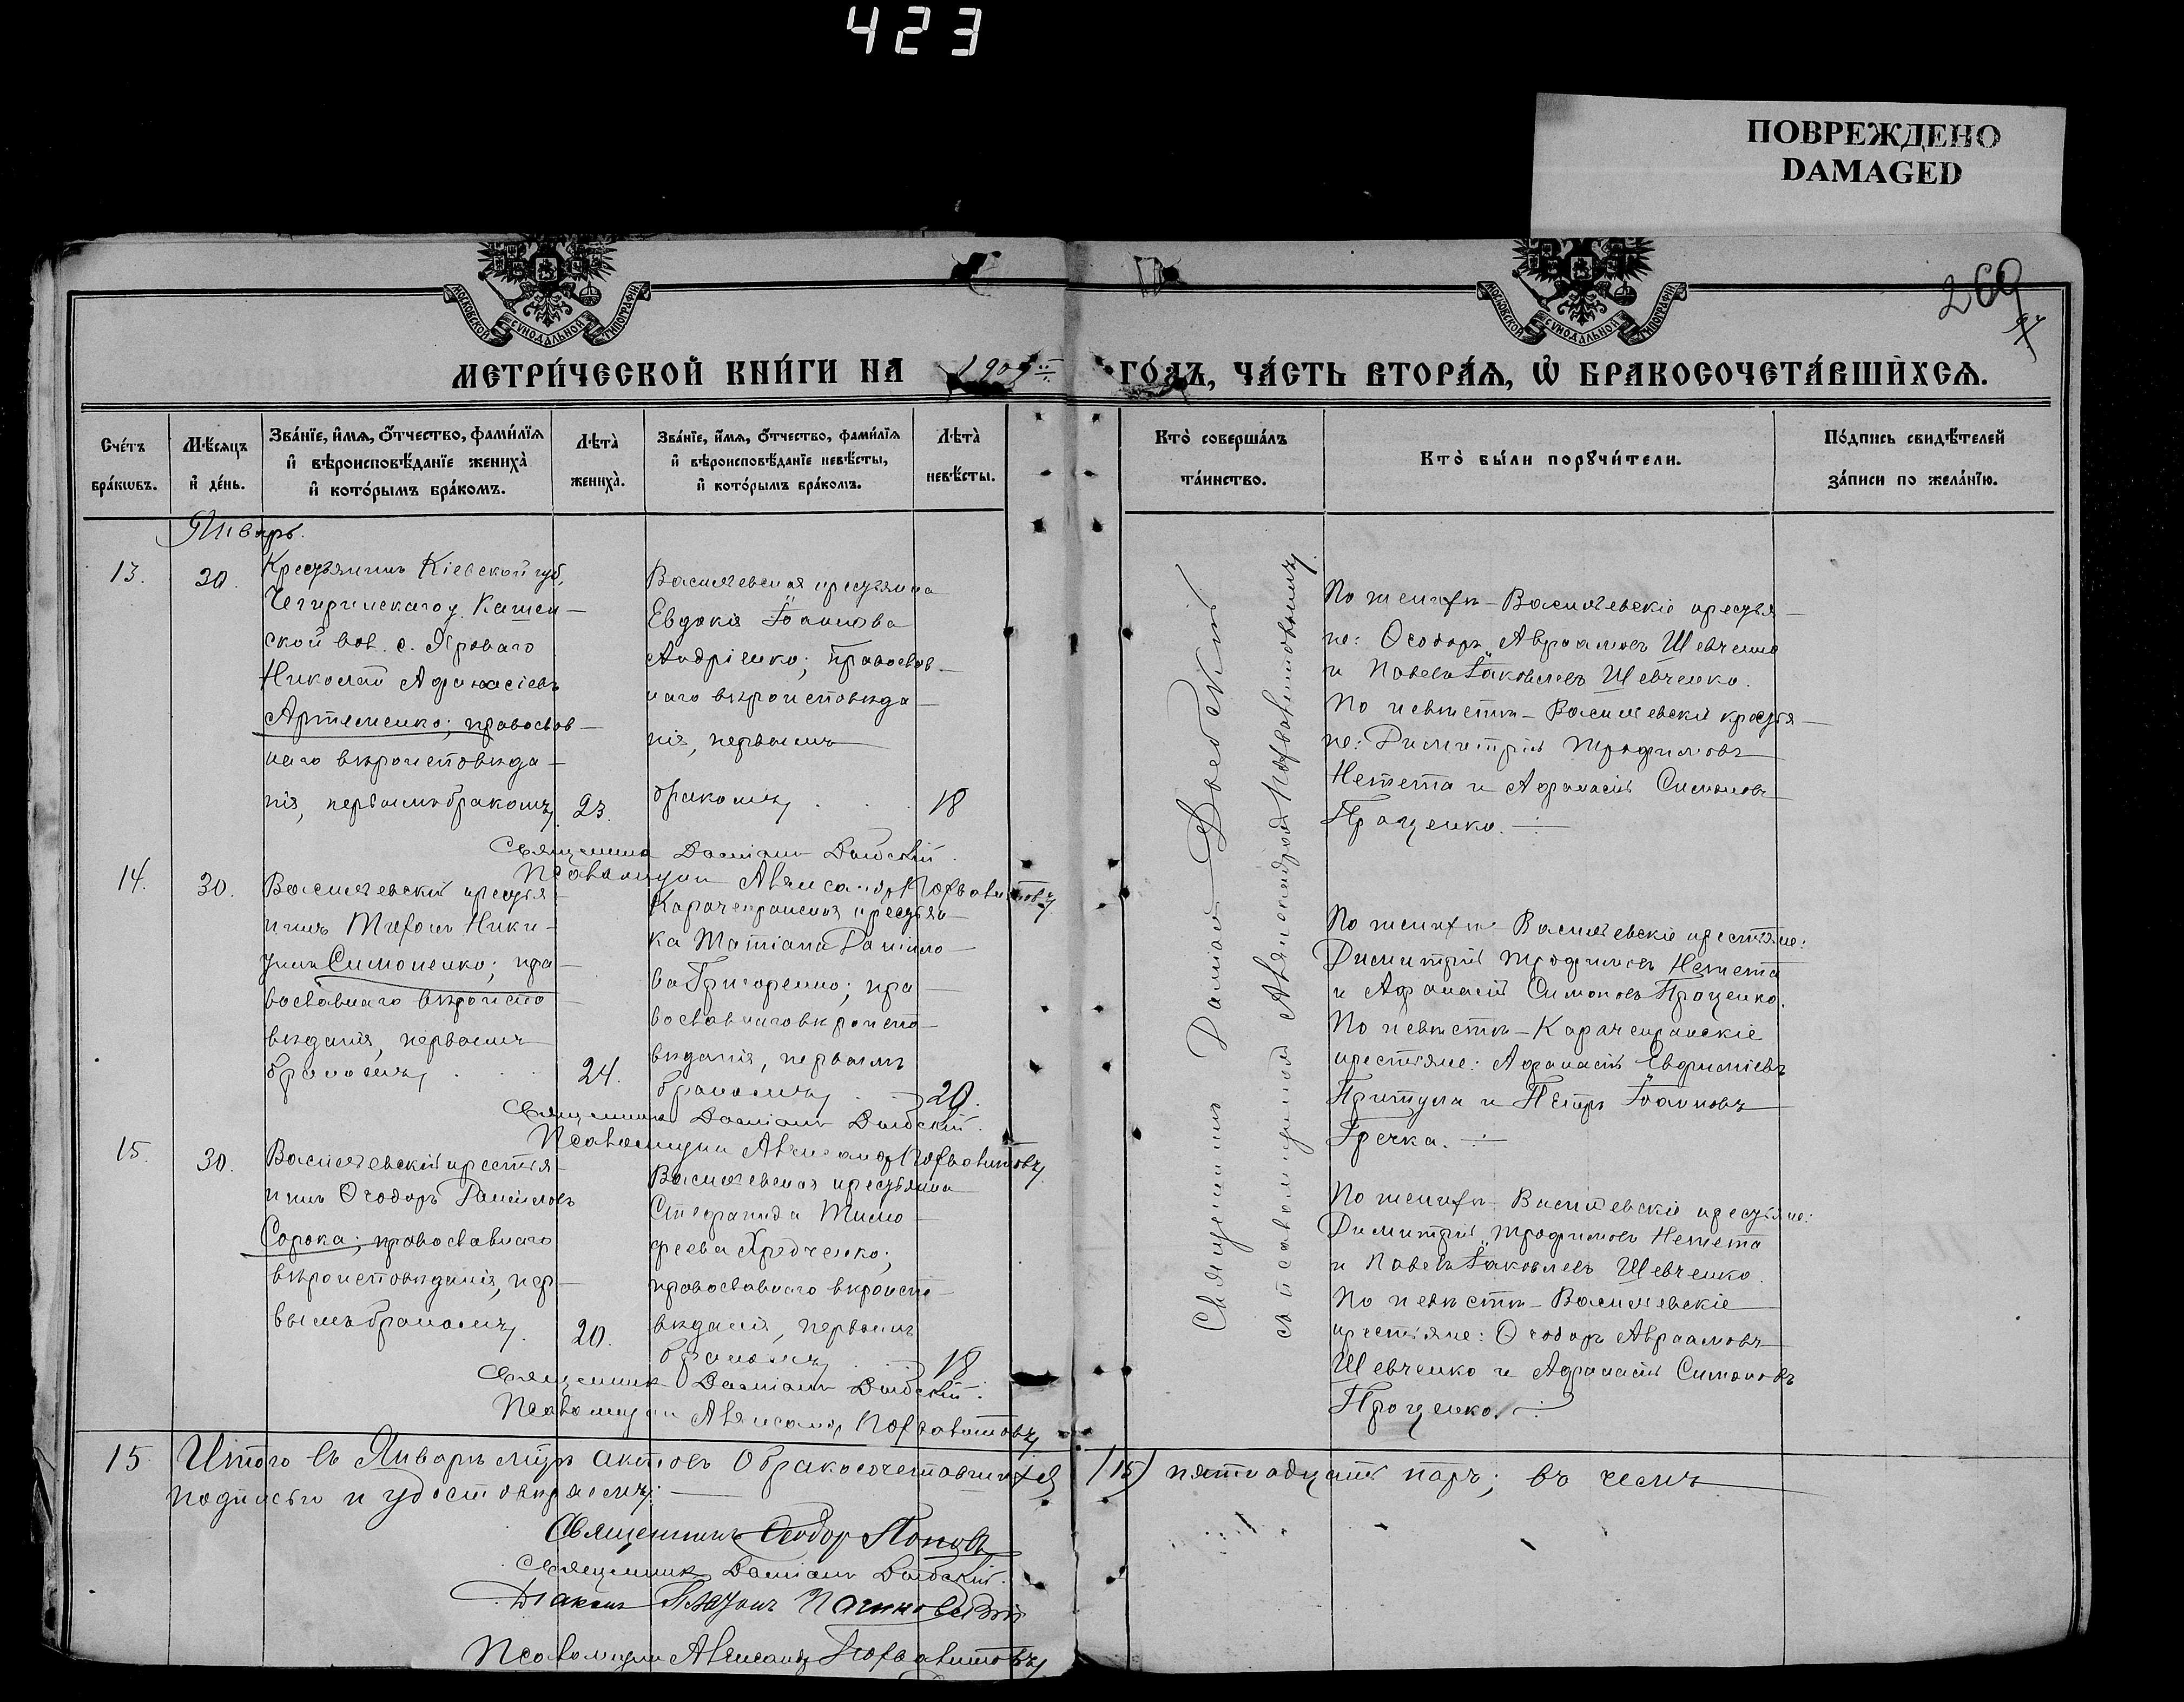 423
ПОВРЕЖДЕНО
DAMAGED
МОСКОВСКОЙ СѴНОДАЛЬНОЙ ТИПОГРАФІИ
МОСКОВСКОЙ СѴНОДАЛЬНОЙ ТИПОГРАФІИ
269
МЕТРИ́ЧЕСКОЙ КНИ́ГИ НА 1909 ГО́ДЪ, ЧА́СТЬ ВТОРА́Ѧ, Ѽ БРАКОСОЧЕТА́ВШИХСѦ.
Сче́тъ
бра́кѡвъ.
Мѣ́сяцъ
и҆ де́нь.
Зва́нїе, и҆́мѧ, ѻ҆́тчество, фами́лїѧ
и҆ вѣроисповѣ́данїе жениха̀
и҆ кото́рымъ бра́комъ.
Лѣта̀
жениха̀.
Зва́нїе, и҆́мѧ, ѻ҆́тчество, фами́лїѧ
и҆ вѣроисповѣ́данїе невѣ́сты,
и҆ кото́рымъ бра́комъ.
Лѣта̀
невѣ́сты.
Кто̀ соверша́лъ
та́инство.
Кто̀ бы́ли порꙋчи́тели.
По́дпись свидѣ́телей
за́писи по жела́нїю.
Январь.
13.
30.
Крестьянинъ Кіевской губ,
Чегиринскаго у. Камен-
ской вол. с. Ярового
Николай Афанасіевъ
Артеменко; православ-
наго вѣроисповѣда-
нія, первымъ бракомъ,
23.
Василевская крестьянка
Евдокія Іоаннова
Андріенко; православ-
наго вѣроисповѣда-
нія, первымъ
бракомъ,
18
Священникъ Даміанъ
Псаломщикъ Александръ
По женихѣ - Василевскіе крестья-
не: Ѳеодоръ Авраамовъ Шевченко
и Павелъ Іаковлевъ Шевченко.
По невѣстѣ - Василевскіе крестья-
не: Димитрій Трофимовъ
Нетета и Афанасій Симоновъ
Проценко.
14.
30.
Василевскій крестья-
нинъ Тихонъ Ники-
тинъ Симоненко; пра-
вославнаго вѣроиспо-
вѣданія, первымъ
бракомъ,
24.
крестьян-
ка Татіана Даніило-
ва Григоренко; пра-
вославнаго вѣроиспо-
вѣданія, первымъ
бракомъ,
20.
Священникъ Даміанъ
Псаломщикъ Александръ
По женихѣ - Василевскіе крестьяне:
Димитрій Трофимовъ Нетета
и Афанасій Симоновъ Проценко.
По невѣстѣ -
крестьяне: Афанасій Евфиміевъ
Притула и Петръ Іоанновъ
Гречка.
15.
30.
Василевскій крестья-
нинъ Ѳеодоръ Даніиловъ
Сорока; православнаго
вѣроисповѣданія, пер-
вымъ бракомъ,
20.
Василевская крестьянка
Стефанида Тимо-
феева
православнаго вѣроиспо-
вѣданія, первымъ
бракомъ,
18
Священникъ Даміанъ
Псаломщикъ Александръ
По женихѣ - Василевскіе крестьяне:
Димитрій Трофимовъ Нетета
и Павелъ Іаковлевъ Шевченко.
По невѣстѣ - Василевскіе
крестьяне: Ѳеодоръ Авраамовъ
Шевченко и Афанасій Симоновъ
Проценко.
Священникъ Даміанъ
съ псаломщикомъ Александромъ
15 Итого въ Январѣ мцѣ актовъ о бракосочетавшихся (15) пятнадцать паръ; въ чемъ
подписью и удостовѣряемъ:
Священникъ Ѳеодоръ Поповъ
Священникъ Даміанъ
Діаконъ
Псаломщикъ Александръ